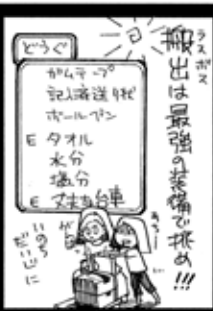 搬出は最強の装備で挑め!!!
ラスボス
どうぐ
ガムテープ
記入済送り状
ボールペン
E タオル
水分
塩分
E 丈夫な台車
いのち
だいじに